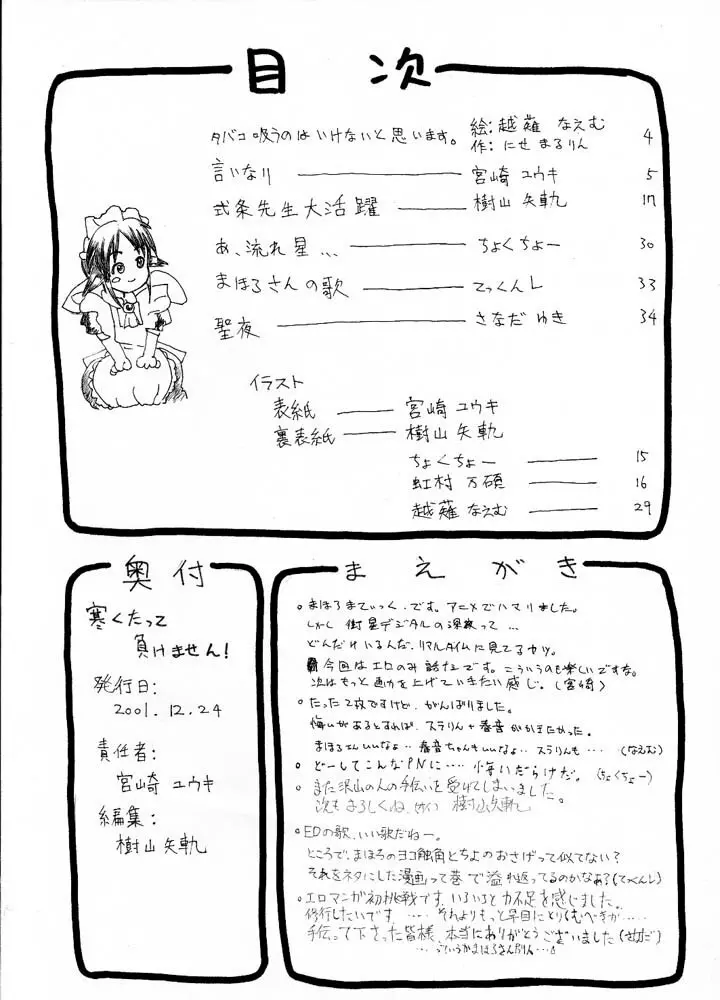 目次
タバコ吸うのはいけないと思います。 絵:越薙 なえむ 4
作:にせ まるりん
言いなり 宮崎 ユウキ 5
式条先生大活躍 樹山 矢軌 17
あ、流れ星... ちょくちょー 30
まほろさんの歌 てっくんL 33
聖夜 さなだ ゆき 34
イラスト
表紙 宮崎 ユウキ
裏表紙 樹山 矢軌
ちょくちょー 15
虹村 万碩 16
越薙 なえむ 29
奥付
寒くたって
負けません!
発行日:
2001.12.24
責任者:
宮崎 ユウキ
編集:
樹山 矢軌
まえがき
○まほろまてぃっく.です。アニメでハマりました。
しかし 衛星デジタルの深夜って…
どんだけいるんだ、リアルタイムに見てるヤツ。
今回はエロのみ話なんです。こういうのも楽しいですな。
次はもっと画力を上げていきたい感じ。(宮崎)
○たった2枚ですけど、がんばりました。
悔いがあるとすれば、スラりん+春音がかきたかった。
まほろさんいいなょ‥ 春音ちゃんもいいなょ‥ スラりんも‥‥ (なえむ)
○どーしてこんなPNに‥‥ 悔いだらけだ。(ちょくちょー)
○また沢山の人の手伝いを受けてしまいました。
次もよろしくね、 樹山矢軌
○EDの歌、いい歌だねー。
ところで、まほろのヨコ触角とちよのおさげって似てない?
それをネタにした漫画って巷で溢れ返ってるのかなぁ?(てっくんL)
○エロマンガ初挑戦です。いろいろと力不足を感じました。
修行したいです ‥‥ それよりもっと早目にとりくむべきが‥‥
手伝って下さった皆様、本当にありがとうございました(さなだ)